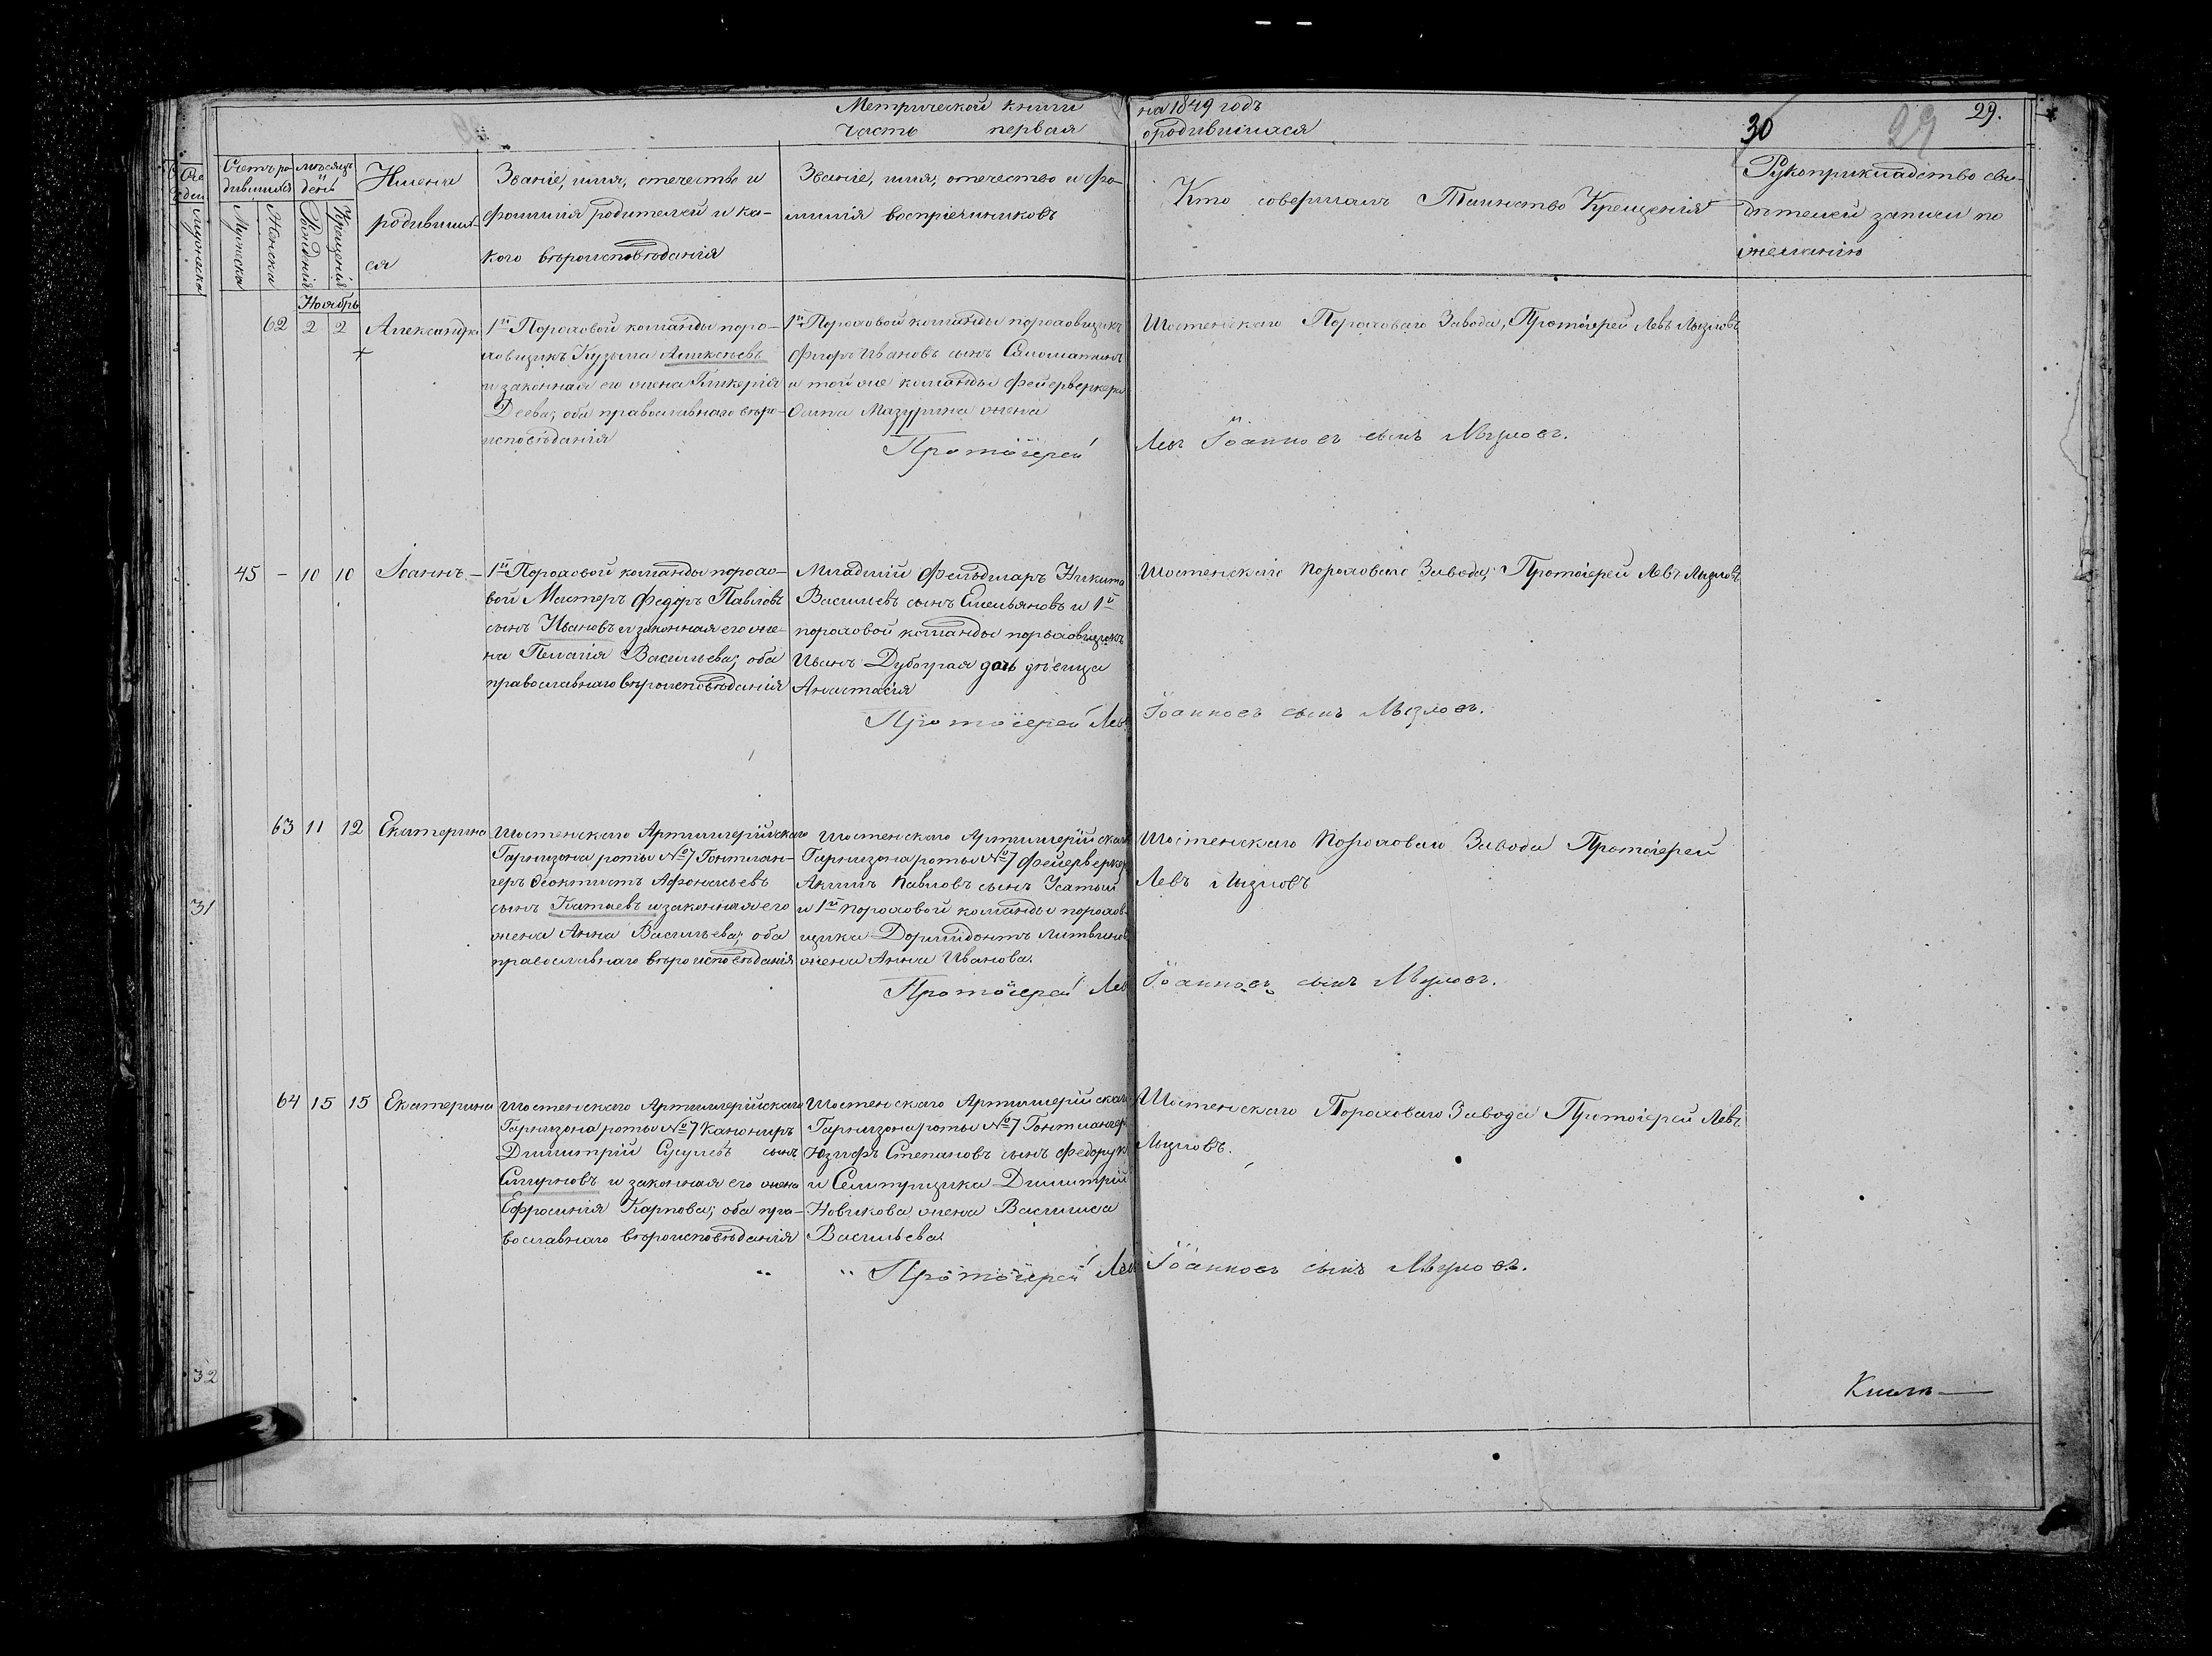 Метрической книги на 1849 годъ
часть первая о родившихся
30 29 29.
Счетъ родившихся
Мужеска
Женска
Мѣсяцъ и день
Рожденія
Крещенія
Имена
родивших-
ся
Званіе, имя, отечество и
фамилія родителей и ка-
кого вѣроисповѣданія
Званіе, имя, отечество и фа-
милія воспріемниковъ
Кто совершалъ Таинство Крещенія
Рукоприкладство сви-
дѣтелей записи по
желанію
Ноябрь
62 2 2 Александра
1й Пороховой команды поро-
ховщикъ Кузьма Алексѣевъ
и законная его жена Гликерія
Деева; оба православнаго вѣро-
исповѣданія
1й Пороховой команды пороховщикъ
Флоръ Ивановъ сынъ
и той же команды фейерверкера
Осипа Мазурина жена
Шостенскаго Пороховаго Завода, Протоіерей Левъ Лызловъ
Протоіерей Левъ Іоанновъ сынъ Лызловъ.
45 – 10 10 Іоаннъ –
1й Пороховой команды порохо-
вой Мастеръ Федоръ Павловъ
сынъ Ивановъ и законная его же-
на Пелагія Васильева; оба
православнаго вѣроисповѣданія
Младшій Фельдшаръ Никита
Васильевъ сынъ Емельяновъ и 1й
пороховой команды пороховщикъ
Иванъ дочь дѣвица
Анастасія
Шостенскаго Пороховаго Завода, Протоіерей Левъ Лызловъ
Протоіерей Левъ Іоанновъ сынъ Лызловъ.
63 11 12 Екатерина
Шостенскаго Артиллерійскаго
Гарнизона роты № 7 Гонтлан-
геръ Феоктистъ Афонасьевъ
сынъ Катаевъ и законная его
жена Анна Васильева; оба
православнаго вѣроисповѣданія
Шостенскаго Артиллерійскаго
Гарнизона роты № 7 фейерверкеръ
Акимъ Павловъ сынъ Усатый
и 1й пороховой команды порохов-
щика Доримдонтъ Литвинова
жена Анна Иванова.
Шостенскаго Пороховаго Завода Протоіерей
Левъ Лызловъ
Протоіерей Левъ Іоанновъ сынъ Лызловъ.
31
64 15 15 Екатерина
Шостенскаго Артиллерійскаго
Гарнизона роты № 7 Канониръ
Димитрій сынъ
Смирновъ и законная его жена
Ефросинія Карпова; оба пра-
вославнаго вѣроисповѣданія
Шостенскаго Артиллерійскаго
Гарнизона роты № 7 Гонтлангеръ
Юзифъ Степановъ сынъ Федорукъ
и Селитрщика Димитрій
Новикова жена Василиса
Васильева.
Шостенскаго Пороховаго Завода Протоіерей Левъ
Лызловъ.
Протоіерей Левъ Іоанновъ сынъ Лызловъ.
32